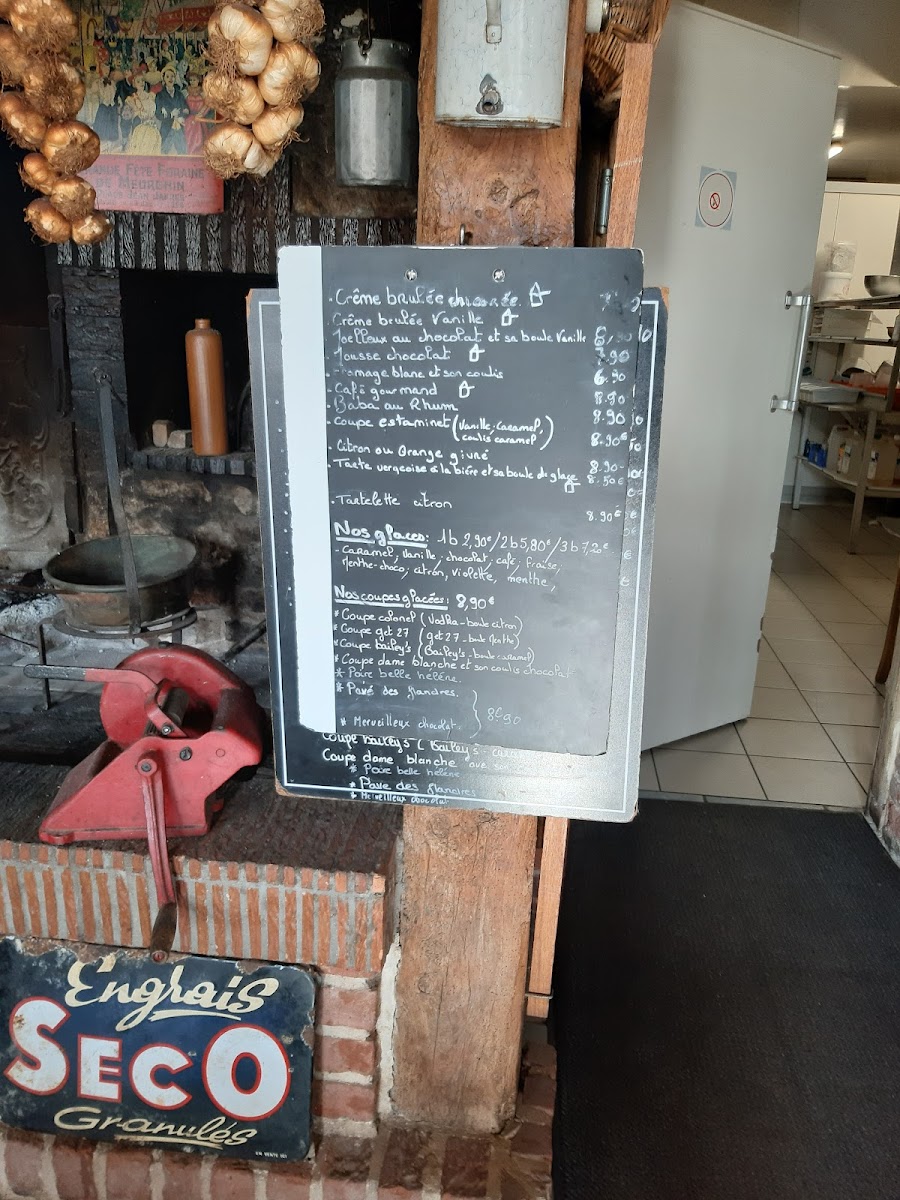 GRANDE FÊTE FORAINE
DE MEURCHIN
Crême brulée chicorée
Crême brulée Vanille
Moelleux au chocolat et sa boule Vanille 8,90
Mousse chocolat 7.90
Fromage blanc et son coulis 6.90
Café gourmand 8.90
Baba au Rhum 8.90
Coupe estaminet (Vanille, caramel, coulis caramel) 8.90€
Citron ou Orange givré 8.90
Tarte vergeoise à la bière et sa boule de glace 8.50€
Tartelette citron 8.90€
Nos glaces: 1b 2,90€/2b 5,80€/3b 7,20€
- Caramel, vanille, chocolat, café, fraise,
Menthe-choco, citron, violette, menthe,
Nos coupes glacées: 8,90€
* Coupe colonel (Vodka - boule citron)
* Coupe get 27 (get 27 - boule Menthe)
* Coupe bailey's (Bailey's - boule caramel)
* Coupe dame blanche et son coulis chocolat
* Poire belle hélène.
* Pavé des flandres.
* Merveilleux chocolat. } 8€90
Coupe Bailey's (Bailey's - cara
Coupe dame blanche ave son
* Poire belle hélène
* Pavé des flandres
* Merveilleux chocolat
Engrais
SECO
Granulés
EN VENTE ICI